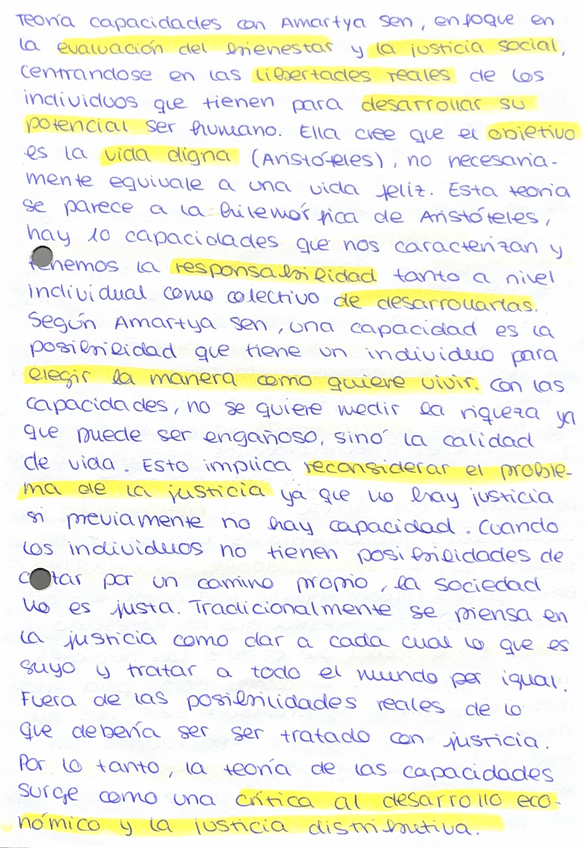 Teoría capacidades con Amartya sen, enfoque en
la evaluación del bienestar y la justicia social,
centrandose en las libertades reales de los
individuos que tienen para desarrollar su
potencial ser humano. Ella cree que el objetivo
es la vida digna (Aristóteles), no necesaria-
mente equivale a una vida feliz. Esta teoría
se parece a la hilemórfica de Aristóteles,
hay 10 capacidades que nos caracterizan y
tenemos la responsabilidad tanto a nivel
individual como colectivo de desarrollarlas.
Según Amartya sen, una capacidad es la
posibilidad que tiene un individuo para
elegir la manera como quiere vivir. Con las
capacidades, no se quiere medir la riqueza ya
que puede ser engañoso, sinó la calidad
de vida. Esto implica reconsiderar el proble-
ma de la justicia ya que no hay justicia
si previamente no hay capacidad. Cuando
los individuos no tienen posibilidades de
por un camino propio, la sociedad
no es justa. Tradicionalmente se piensa en
la justicia como dar a cada cual lo que es
suyo y tratar a todo el mundo per igual.
Fuera de las posibilidades reales de lo
que debería ser ser tratado con justicia.
Por lo tanto, la teoría de las capacidades
surge como una crítica al desarrollo eco-
nómico y la justicia distributiva.